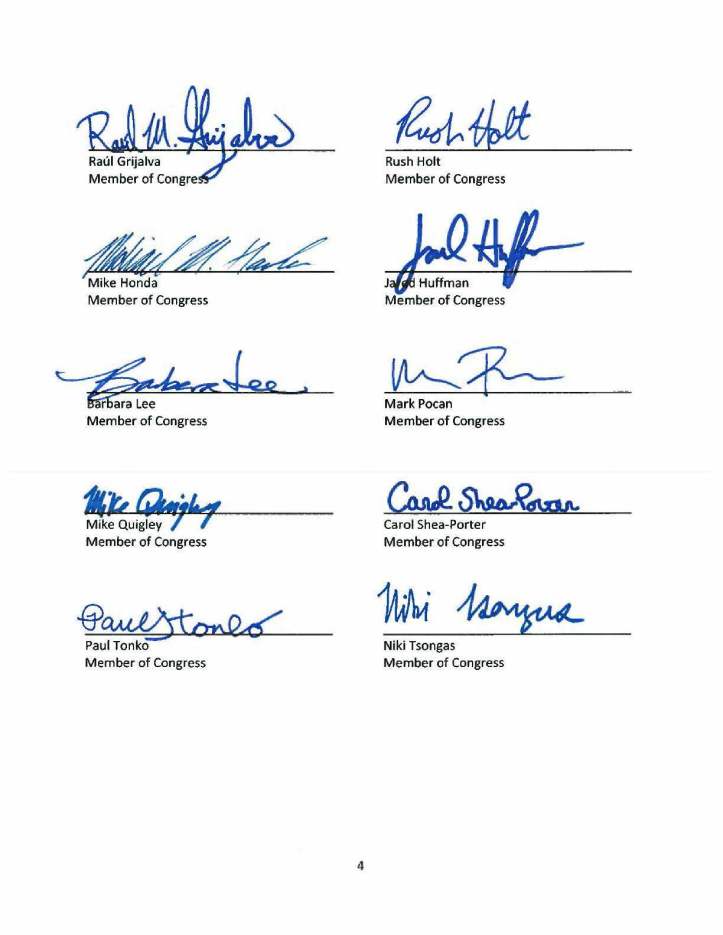 Raúl M. Grijalva
Raúl Grijalva
Member of Congress
Rush Holt
Rush Holt
Member of Congress
Michael M. Honda
Mike Honda
Member of Congress
Jared Huffman
Jared Huffman
Member of Congress
Barbara Lee
Barbara Lee
Member of Congress
Mark Pocan
Member of Congress
Mike Quigley
Mike Quigley
Member of Congress
Carol Shea-Porter
Carol Shea-Porter
Member of Congress
Paul Tonko
Paul Tonko
Member of Congress
Niki Tsongas
Niki Tsongas
Member of Congress
4